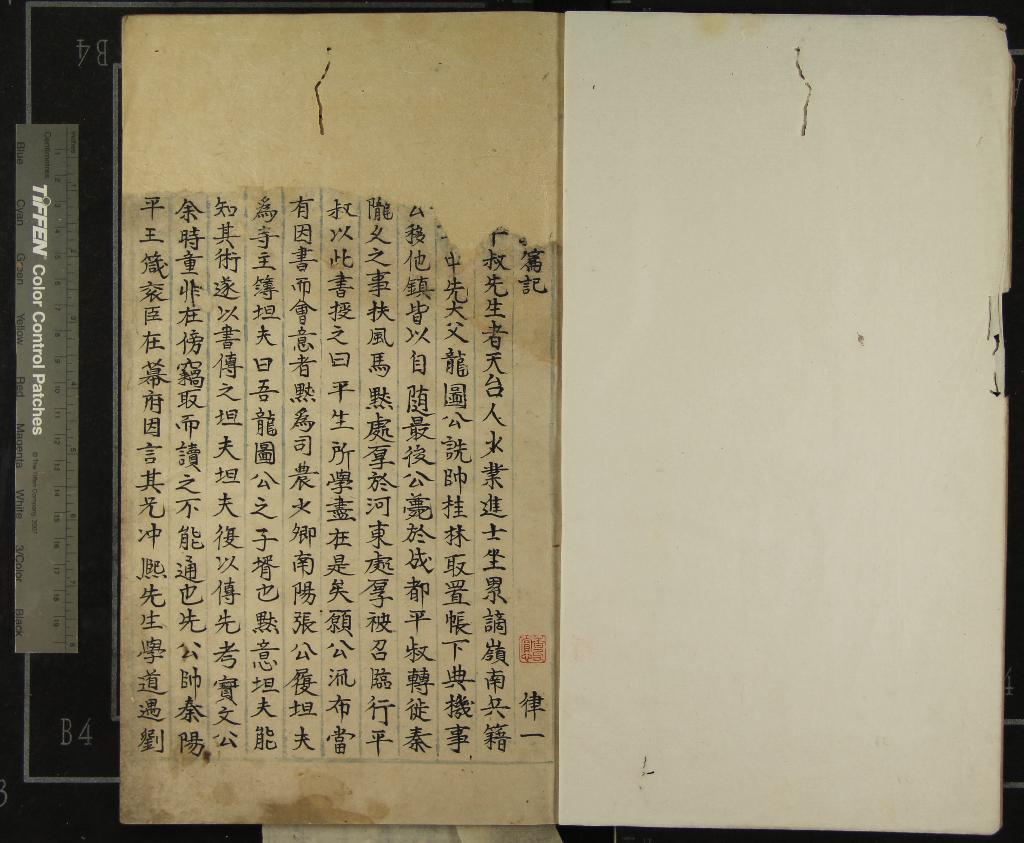 篇記
律一
叔先生者天台人少業進士坐累謫嶺南兵籍
中先大父龍圖公詵帥桂林取置帳下典機事
公移他鎮皆以自随最後公薨於成都平叔轉徙秦
隴久之事扶風馬黙處厚於河東處厚被召臨行平
叔以此書授之曰平生所學盡在是矣願公流布當
有因書而會意者黙爲司農少卿南陽張公履坦夫
爲寺主簿坦夫曰吾龍圖公之子壻也黙意坦夫能
知其術遂以書傳之坦夫坦夫復以傳先考寶文公
余時童丱在傍竊取而讀之不能通也先公帥秦陽
平王箴衮臣在幕府因言其兄冲熈先生學道遇劉
B4
B4
TIFFEN Color Control Patches
© The Tiffen Company, 2007
Centimetres
Inches
Blue Cyan Green Yellow Red Magenta White 3/Color Black